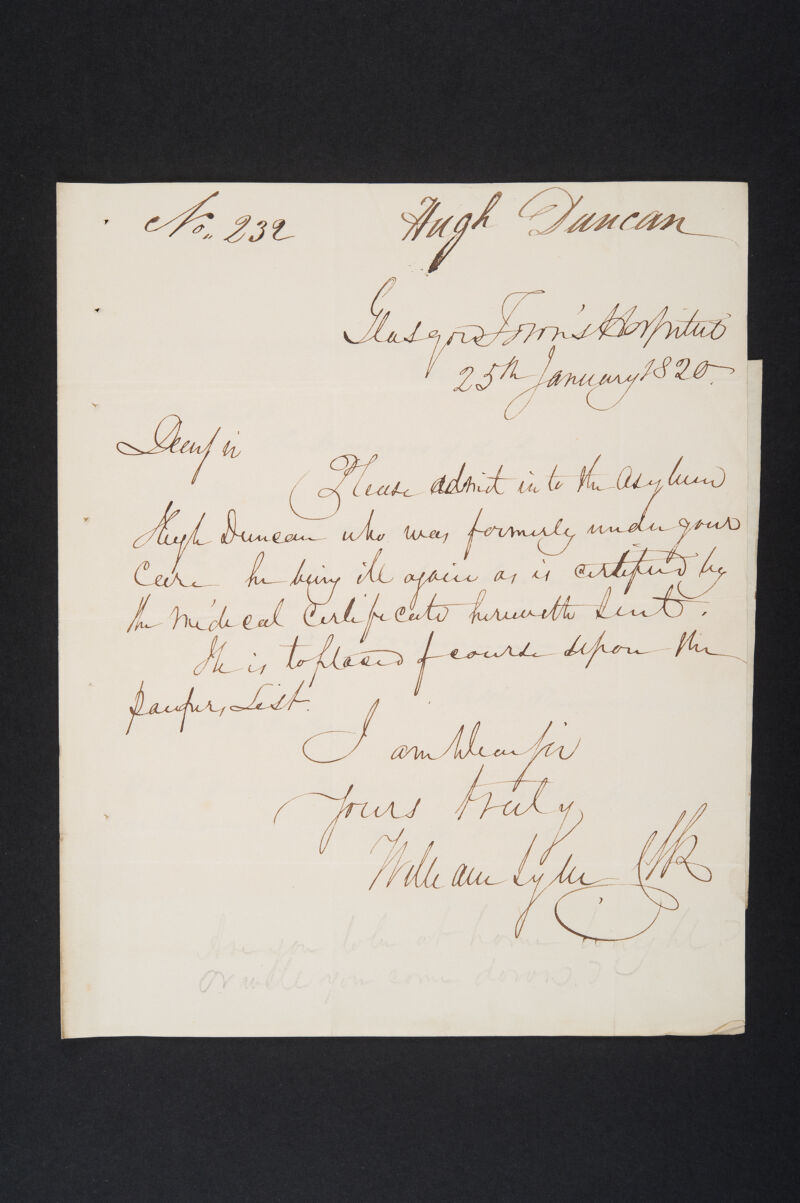 No. 232 Hugh Duncan
Glasgow Town's Hospital
25th January 1820.
Dear Sir
Please admit into the asylum
Hugh Duncan who was formerly under your
Care he being ill again as is certified by
the Medical Certificate herewith Sent.
He is to placed of course upon the
paupers List.
I am Dear Sir
Yours truly
William Lyle Clk
Are you to be at home tonight?
or will you come down?